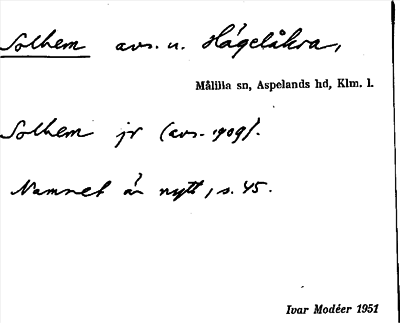 Solhem avs. u. Hagelåkra,
Målilla sn, Aspelands hd, Klm. l.
Solhem jr (avs. 1909).
Namnet är nytt, s. 45.
Ivar Modéer 1951